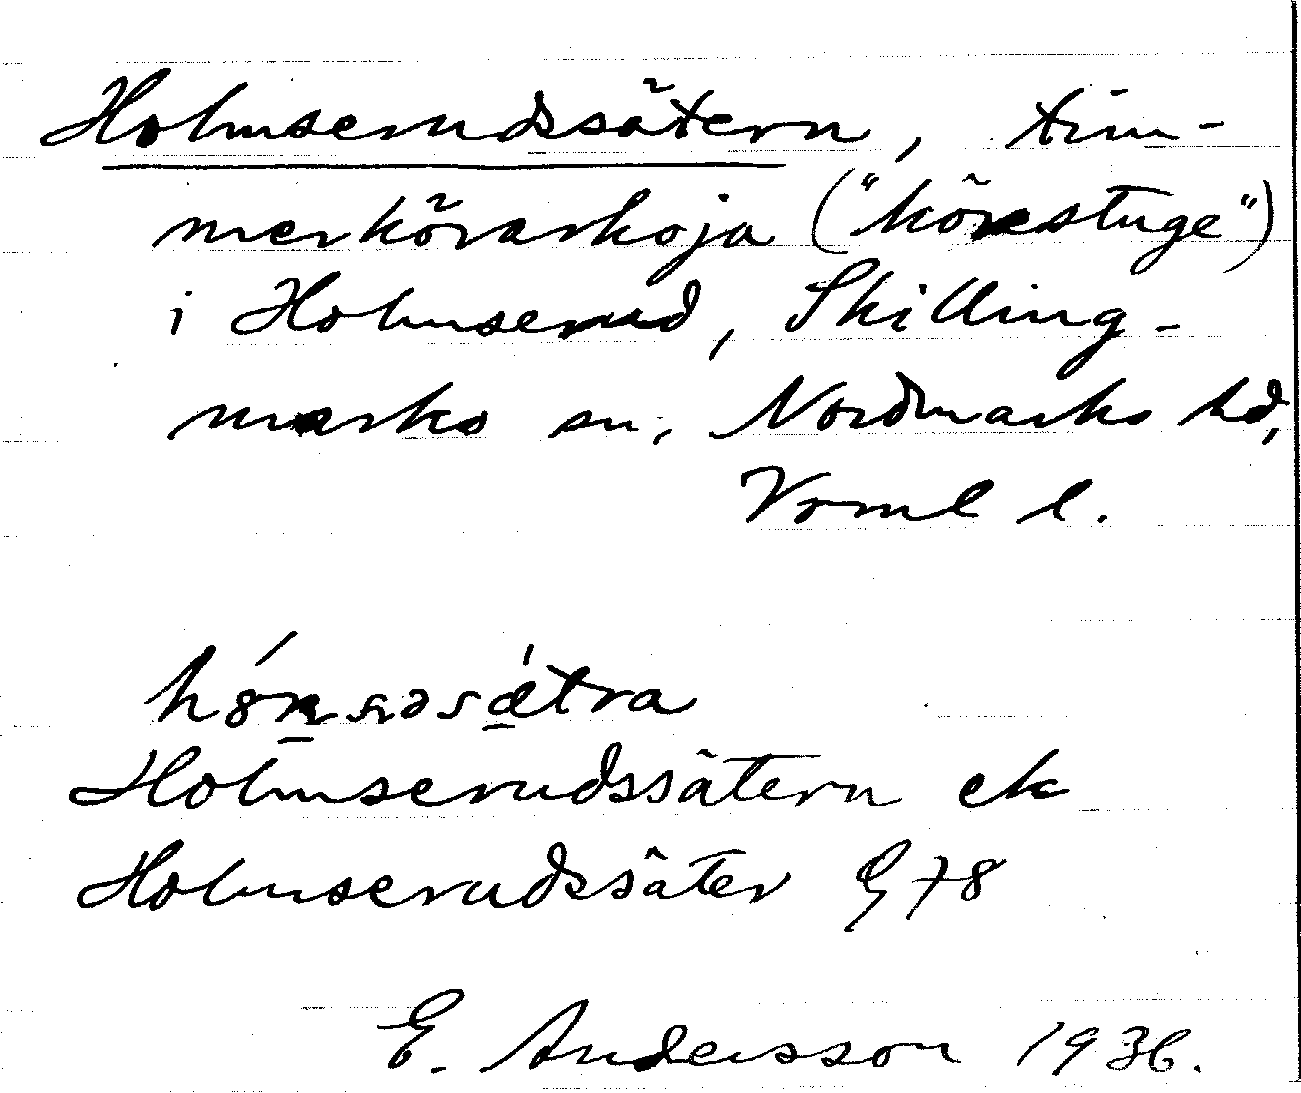 Holmserudssätern, tim-
merkörarkoja ("körestuge")
i Holmserud, Skilling-
marks sn, Nordmarks hd,
Vrml l.
Holmserudssätern ek
Holmserudssäter G 78
E. Andersson 1936.